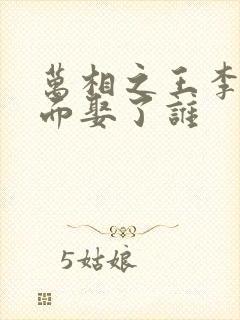 萬相之王李
而娶了誰
5姑娘